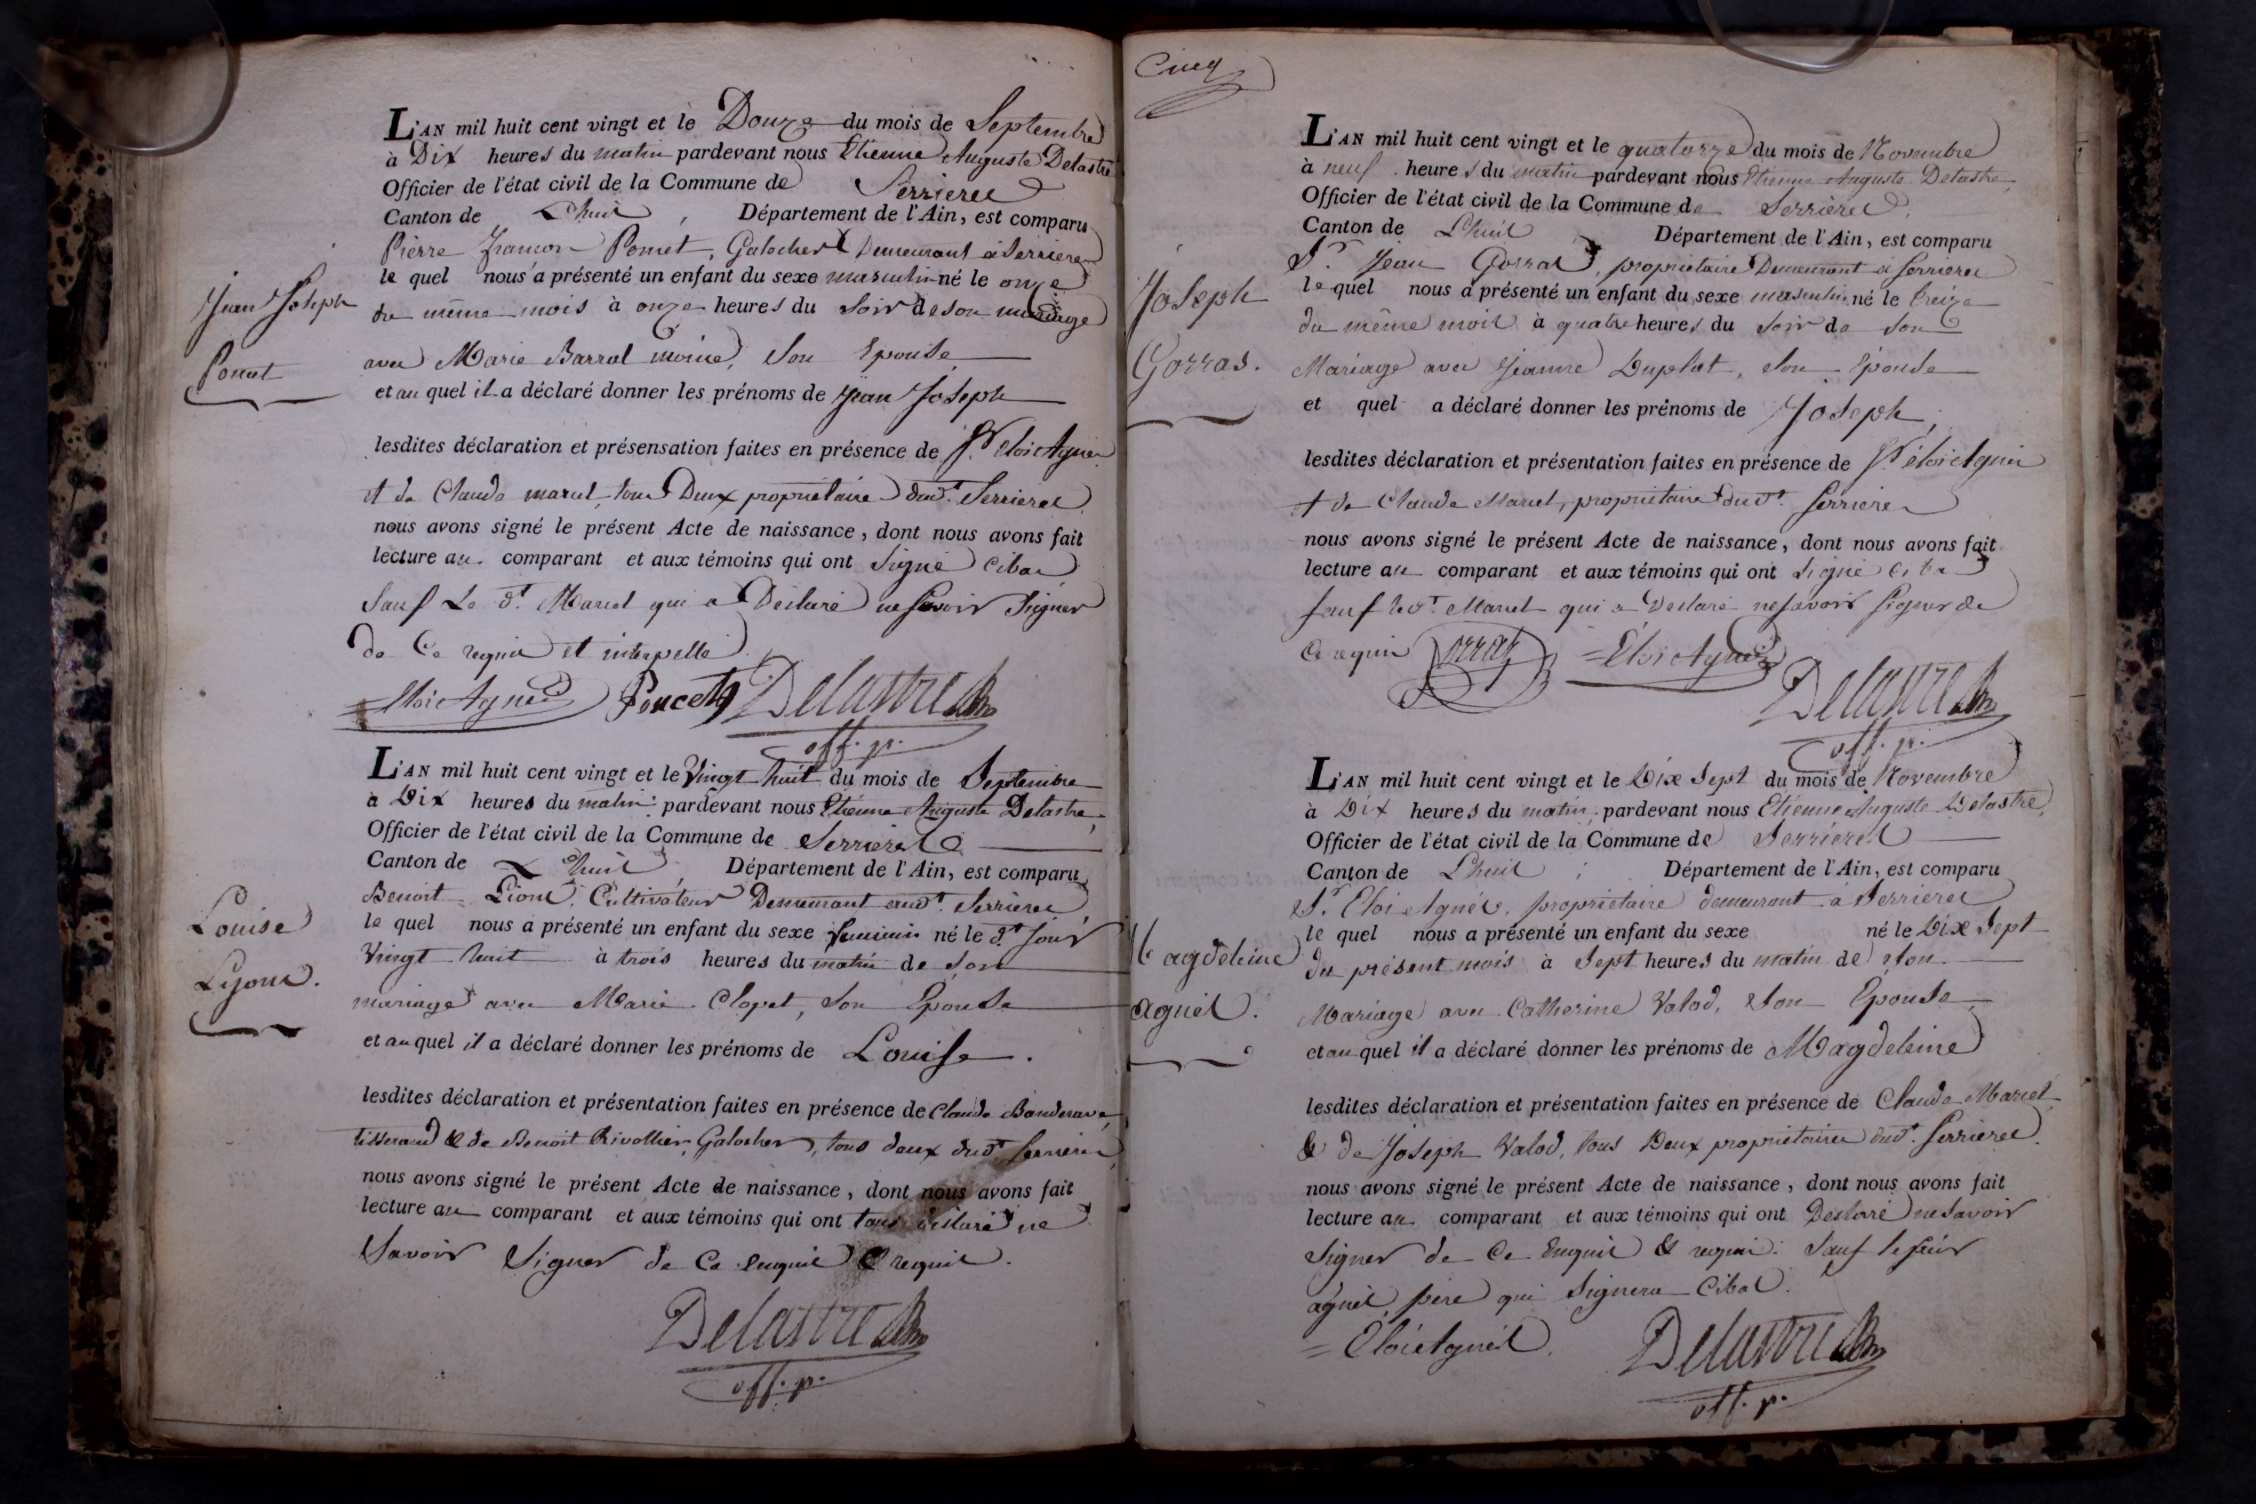 L'AN mil huit cent vingt et le Douze du mois de Septembre
à Dix heures du matin pardevant nous Etienne Auguste Delastre
Officier de l'état civil de la Commune de Serrieres
Canton de Lhuis, Département de l'Ain, est comparu
Pierre Poncet, Galocher Demeurant à Serrieres
le quel nous a présenté un enfant du sexe masculin né le onze
du même mois à onze heures du Soir de son mariage
Jean Joseph
Poncet
avec Marie Barral son Epouse
et au quel il a déclaré donner les prénoms de Jean Joseph
lesdites déclaration et présensation faites en présence de Sr. Eloi Agnès
et de Claude marcel tous Deux proprietaires dud. Serrieres
nous avons signé le présent Acte de naissance, dont nous avons fait
lecture au comparant et aux témoins qui ont Signé cibas
Sauf Le dt. Marcel qui a Déclaré ne Savoir Signer
de Ce requis et interpellé
Eloi Agnès Poncet Delastre
off. p.
L'AN mil huit cent vingt et le Vingt huit du mois de Septembre
à Dix heures du matin pardevant nous Etienne Auguste Delastre,
Officier de l'état civil de la Commune de Serrieres
Canton de Lhuis, Département de l'Ain, est comparu
Benoit Lions, Cultivateur Demeurant aud. Serrieres,
le quel nous a présenté un enfant du sexe feminin né le dt. Jour
Louise
Lyons.
Vingt huit à trois heures du matin de son
mariage avec Marie Clopet, son Epouse
et au quel il a déclaré donner les prénoms de Louise.
lesdites déclaration et présentation faites en présence de Claude
tisserand & de Benoit Rivollier, Galocher, tous deux dud. Serrieres,
nous avons signé le présent Acte de naissance, dont nous avons fait
lecture au comparant et aux témoins qui ont tous déclaré ne
Savoir Signer de Ce enquis & requis.
Delastre
off. p.
Cinq
L'AN mil huit cent vingt et le quatorze du mois de Novembre
à neuf heures du matin pardevant nous Etienne Auguste Delastre,
Officier de l'état civil de la Commune de Serrieres,
Canton de Lhuis Département de l'Ain, est comparu
Sr. Jean Gorras, proprietaire Demeurant à Serrieres
le quel nous a présenté un enfant du sexe masculin né le treize
Joseph
Gorras.
du même mois à quatre heures du Soir de Son
Mariage avec Jeanne Duplat, son Epouse
et quel a déclaré donner les prénoms de Joseph,
lesdites déclaration et présentation faites en présence de Sr. éloi Agnès
et de Claude Marcel, proprietaires dud. Serrieres
nous avons signé le présent Acte de naissance, dont nous avons fait
lecture au comparant et aux témoins qui ont Signé cibas
Sauf le dt. Marcel qui a Déclaré ne Savoir Signer de
Ce requis Gorras Eloi Agnès
Delastre
off. p.
L'AN mil huit cent vingt et le Dix Sept du mois de Novembre
à Dix heures du matin, pardevant nous Etienne Auguste Delastre,
Officier de l'état civil de la Commune de Serrieres
Canton de Lhuis, Département de l'Ain, est comparu
Sr. Eloi Agnès, proprietaire demeurant à Serrieres
le quel nous a présenté un enfant du sexe né le Dix Sept
Magdeleine
agnés.
du présent mois à Sept heures du matin de Son
Mariage avec Catherine Valod, Son Epouse,
et au quel il a déclaré donner les prénoms de Magdeleine
lesdites déclaration et présentation faites en présence de Claude Marcel
& de Joseph Valod, tous Deux proprietaires dud. Serrieres.
nous avons signé le présent Acte de naissance, dont nous avons fait
lecture au comparant et aux témoins qui ont Déclaré ne Savoir
Signer de Ce Enquis & requis. Sauf le Sieur
agnés, père qui Signera Cibas.
Eloi Agnès Delastre
off. p.